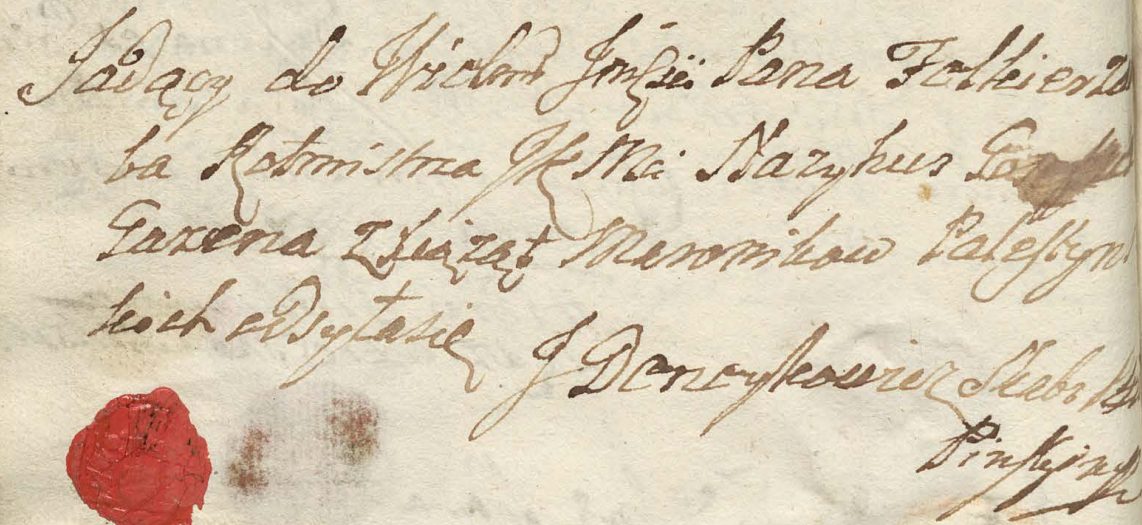 Jadący do Wielmo Jmści Pana Folkierza
ba Rotmistrza JKMci Nazyhus
Gazena z Xiążąt Maronikow Palestyns
kich odsyła się
J Donczykowicz Skarb
Pinsky